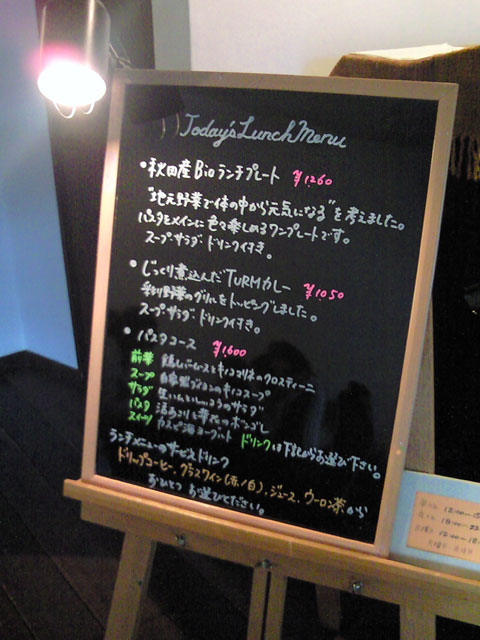 Today's Lunch Menu
・秋田産Bioランチプレート ¥1260
"地元野菜で体の中から元気になる"を考えました。
パスタをメインに色々楽しめるワンプレートです。
スープ サラダ ドリンク付き。
・じっくり煮込んだTURMカレー ¥1050
彩り野菜のグリルをトッピングしました。
スープ サラダ ドリンク付き。
・パスタコース ¥1600
前菜 鶏レバームースときのこマリネのクロスティーニ
スープ きのこスープ
サラダ 生ハムと のサラダ
パスタ のボンゴレ
スイーツ カスピ海ヨーグルト
ドリンクは下記からお選び下さい。
ランチメニューのサービスドリンク
ドリップコーヒー、グラスワイン(赤/白)、ジュース、ウーロン茶から
おひとつ お選びください。